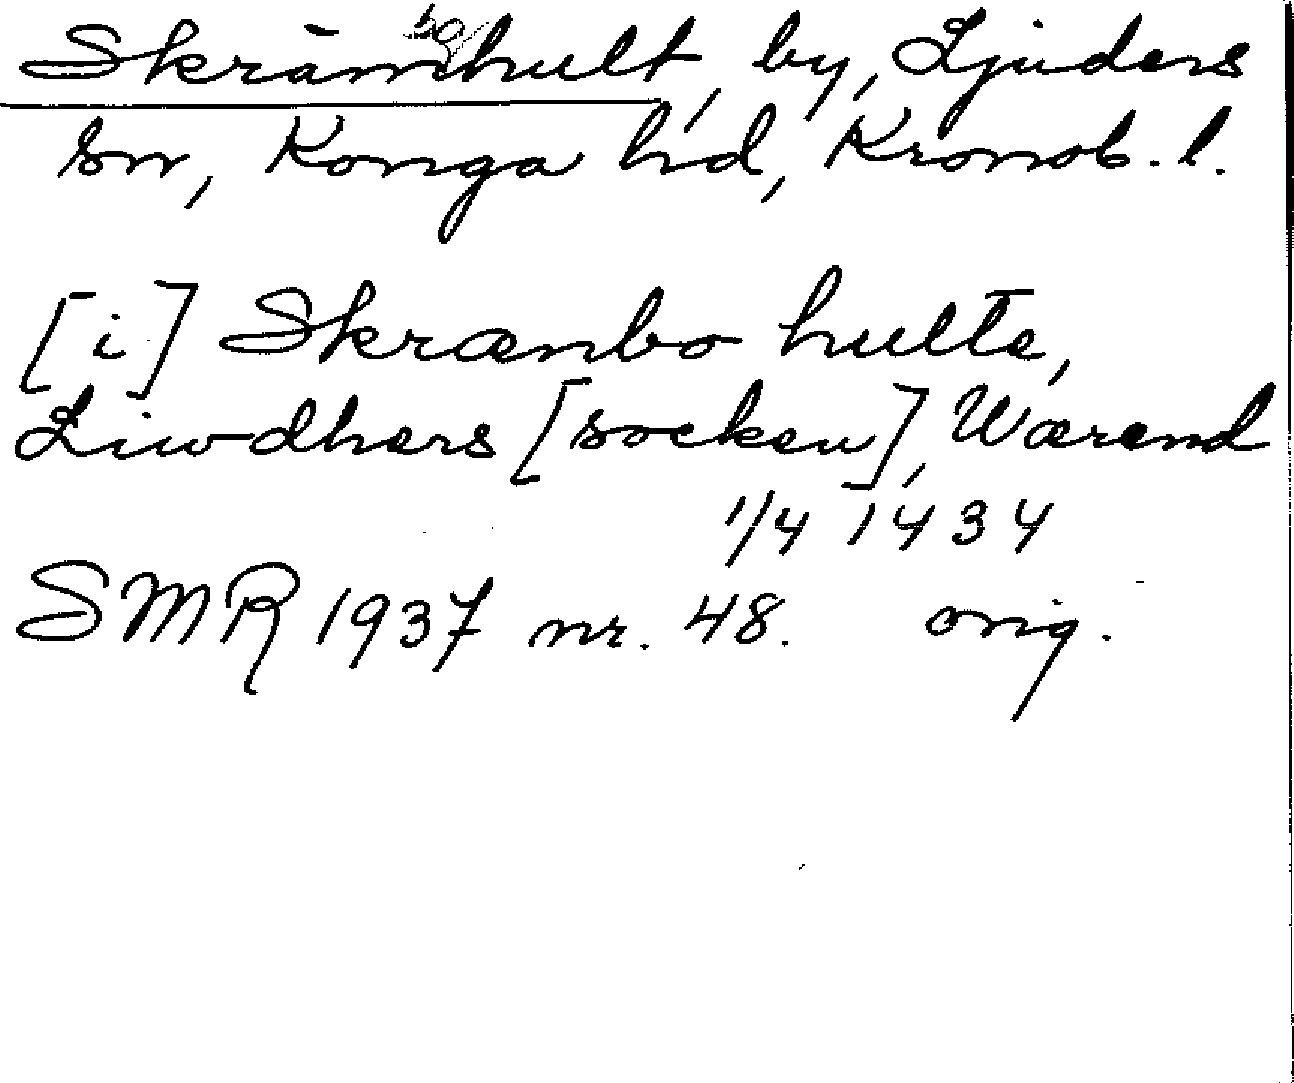 Skrämbohult, by, Ljuders
sn, Konga hd, Kronob. l.
[i] Skrænbo hulte,
Liwdhers [socken], Wærend
1/4 1434
SMR 1937 nr. 48. orig.